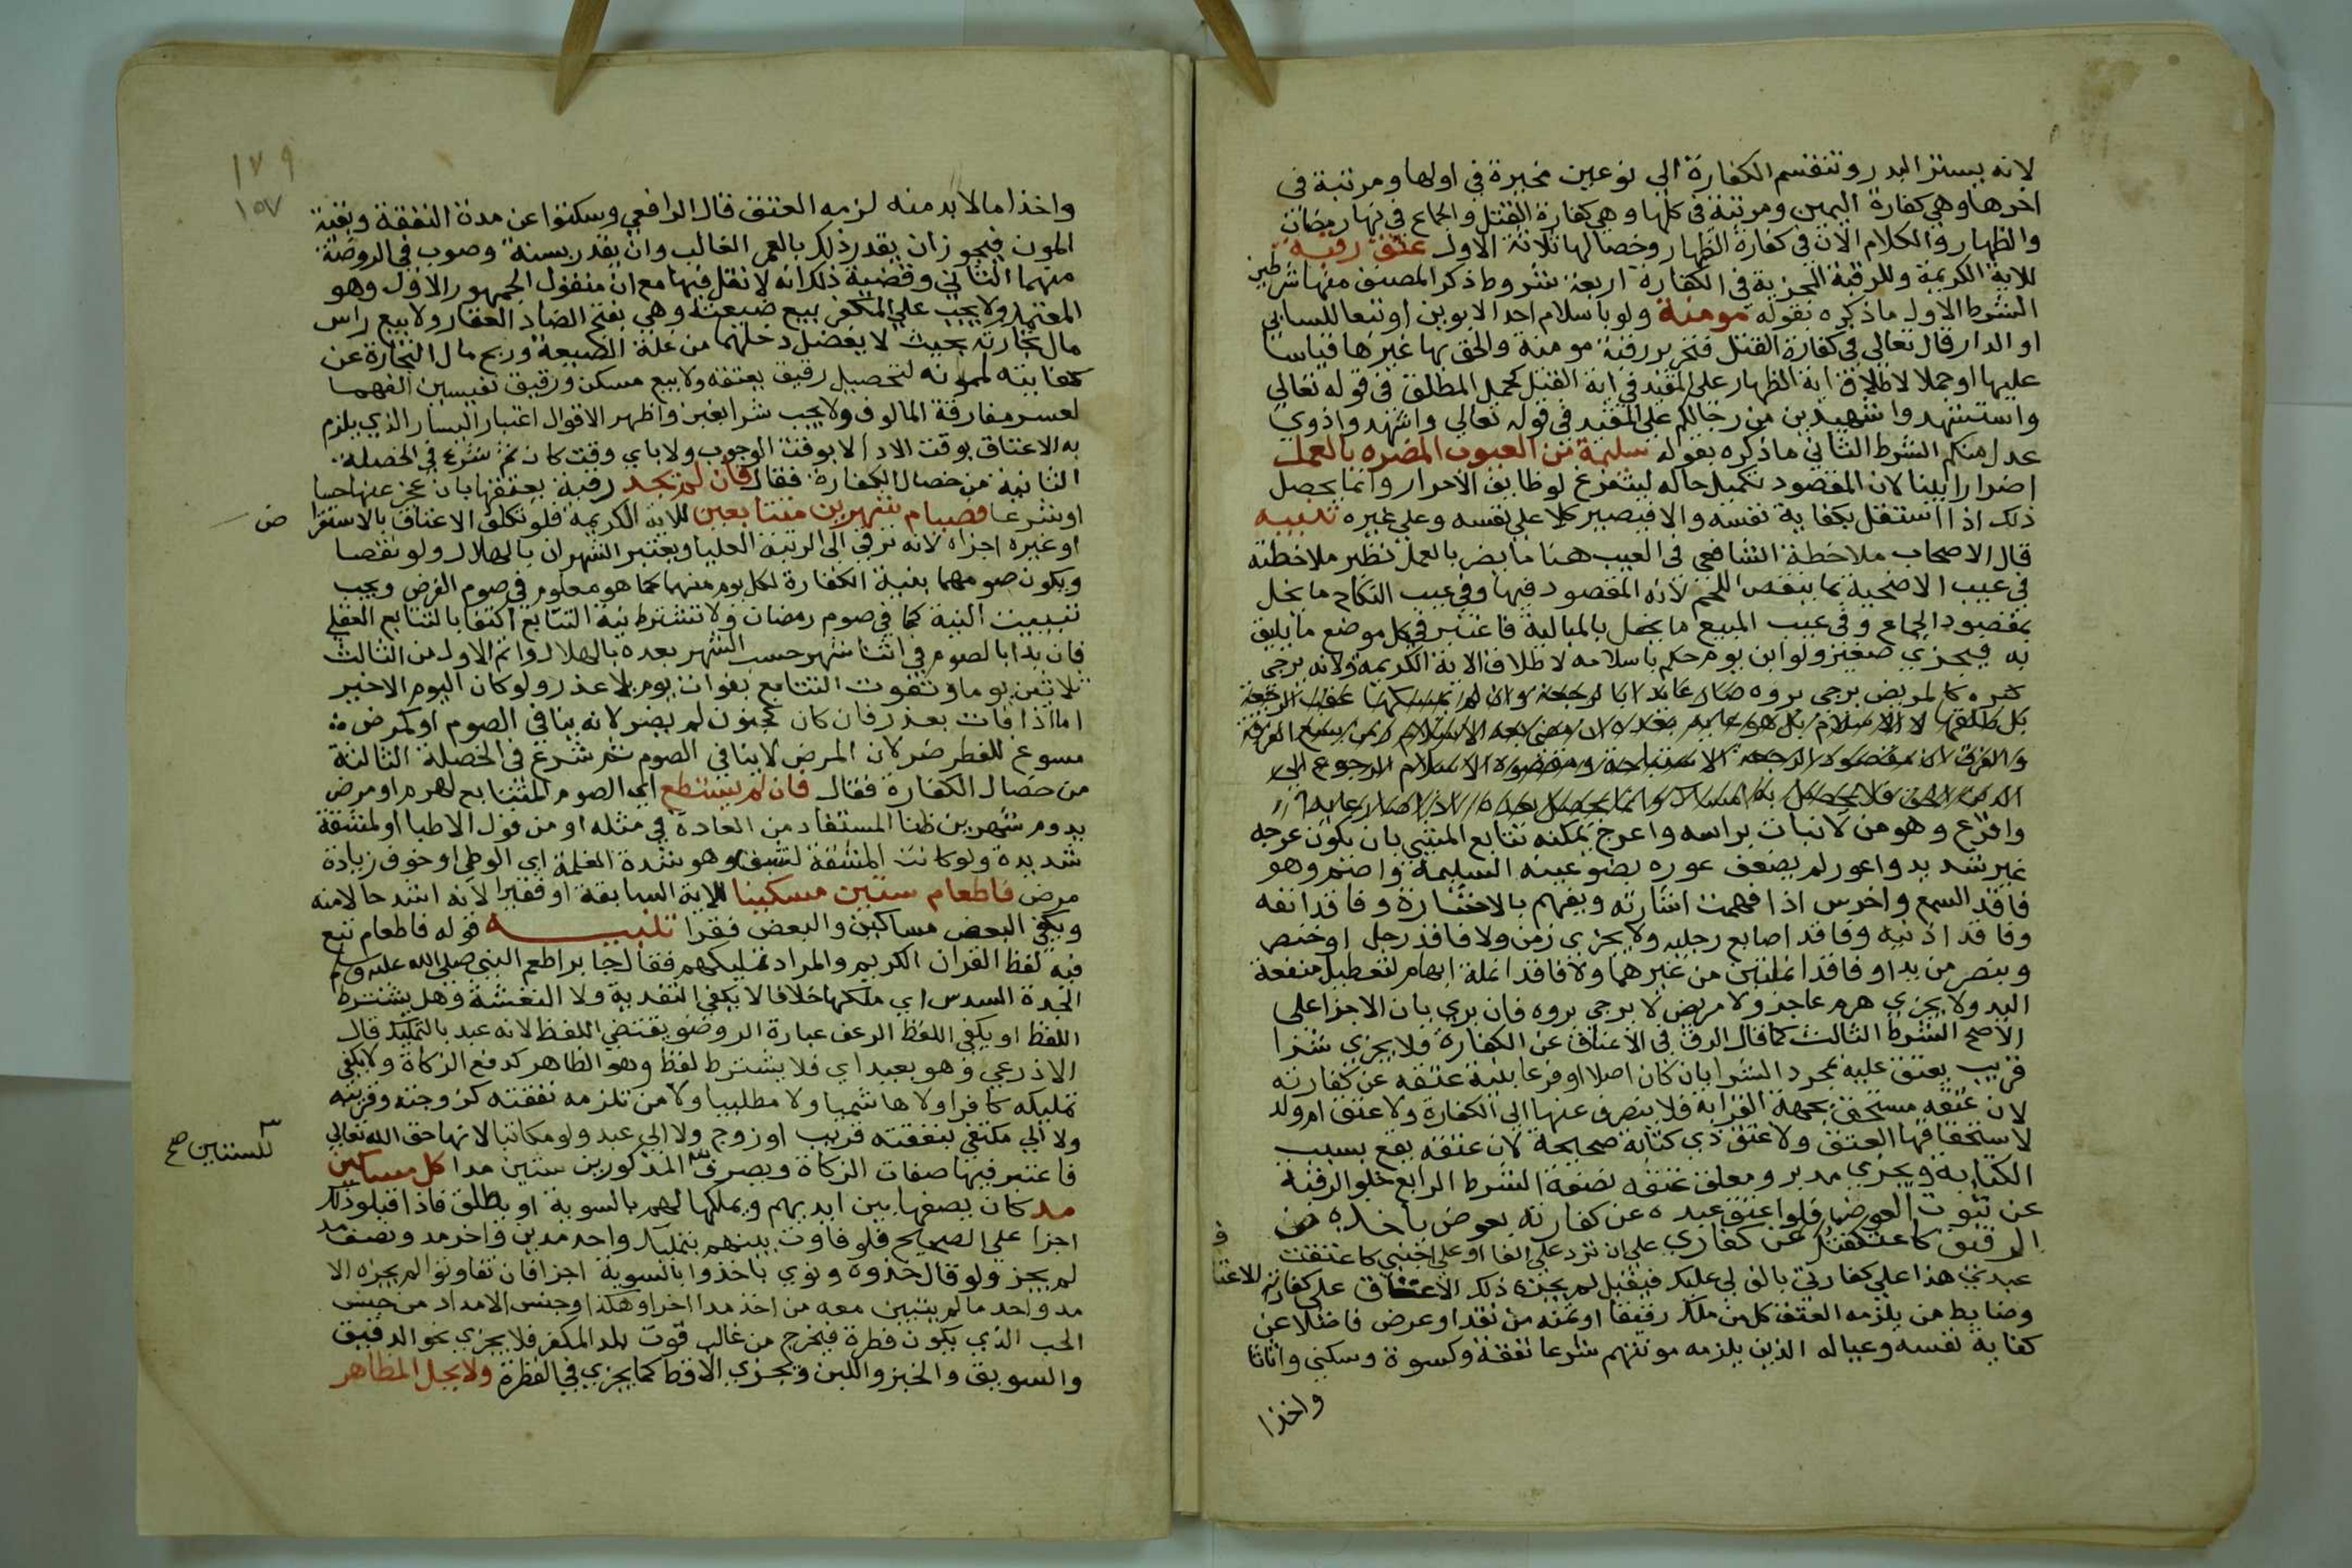 لانه يستر الذنب وتنقسم الكفارة الى نوعين مخيرة في اولها ومرتبة في
اخرها وهي كفارة اليمين ومرتبة في كلها وهي كفارة القتل والجماع في نهار رمضان
والظهار والكلام الان في كفارة الظهار وخصالها ثلاثة الاول عتق رقبة
للاية الكريمة وللرقبة المجزية في الكفارة اربعة شروط ذكر المصنف منها شرطين
الشرط الاول ما ذكره بقوله مومنة ولو باسلام احد الابوين او تبعا للسابي
او الدار قال تعالي في كفارة القتل فتحرير رقبة مومنة والحق بها غيرها قياسا
عليها او حملا لاطلاق اية الظهار على المقيد في اية القتل كحمل المطلق في قوله تعالي
واستشهدوا شهيدين من رجالكم على المقيد في قوله تعالي واشهدوا ذوي
عدل منكم الشرط الثاني ما ذكره بقوله سليمة من العيوب المضرة بالعمل
اضرارا بينا لان المقصود تكميل حاله ليتفرغ لوظايف الاحرار وانما يحصل
ذلك اذا استقل بكفاية نفسه والا فيصير كلا على نفسه وعلى غيره تنبيه
قال الاصحاب ملاحظة الشافعي في العيب هنا ما يضر بالعمل نظير ملاحظته
في عيب الاضحية بما ينقص اللحم لانه المقصود فيها وفي عيب النكاح ما يخل
بمقصود الجماع وفي عيب المبيع ما يخل بالمالية فاعتبر في كل موضع ما يليق
به فيجزي صغير ولو ابن يوم حكم باسلامه لاطلاق الاية الكريمة ولانه يرجى
كبره كالمريض يرجى بروه
واقرع وهو من لا نبات براسه واعرج يمكنه تتابع المشي بان يكون عرجه
غير شديد واعور لم يضعف عوره بضو عينه السليمة واصم وهو
فاقد السمع واخرس اذا فهمت اشارته ويفهم بالاشارة وفاقد انفه
وفاقد اذنيه وفاقد اصابع رجليه ولا يجزي زمن ولا فاقد رجل او خنصر
وبنصر من يد او فاقد انملتين من غيرهما ولا فاقد انملة ابهام لتعطيل منفعة
اليد ولا يجزي هرم عاجز ولا مريض لا يرجى بروه فان بري بان الاجزا على
الاصح الشرط الثالث كمال الرق في الاعتاق عن الكفارة فلا يجزي شرا
قريب يعتق عليه بمجرد الشرا بان كان اصلا او فرعا بنية عتقه عن كفارته
لان عتقه مستحق بجهة القرابة فلا ينصرف عنها الى الكفارة ولا عتق ام ولد
لاستحقاقها العتق ولا عتق ذي كتابة صحيحة لان عتقه يقع بسبب
الكتابة ويجزي مدبر ومعلق عتقه بصفة الشرط الرابع خلو الرقبة
عن شوب العوض فلو اعتق عبده عن كفارته بعوض ياخذه من
الرقيق كاعتقتك عن كفارتي على ان ترد علي الفا او على اجنبي كاعتقت
عبدي هذا على كفارتي بالف لي عليك فيقبل لم يجزه ذلك الاعتاق على كفارته
وضابط من يلزمه العتق كل من ملك رقيقا او ثمنه من نقد او عرض فاضلا عن
كفاية نفسه وعياله الذين يلزمه مونتهم شرعا نفقة وكسوة وسكنى واثاثا
واخذا
١٧٩
١٥٧
واخذا ما لا بد منه لزمه العتق قال الرافعي وسكتوا عن مدة النفقة وبقية
المون فيجوز ان يقدر ذلك بالعمر الغالب وان يقدر بسنة وصوب في الروضة
منهما الثاني وقضية ذلك انه لا نقل فيها مع ان منقول الجمهور الاول وهو
المعتمد ولا يجب على المكفر بيع ضيعته وهي بفتح الضاد العقار ولا بيع راس
مال تجارته بحيث لا يفضل دخلهما من غلة الضيعة وربح مال التجارة عن
كفايته لممونه لتحصيل رقيق يعتقه ولا بيع مسكن ورقيق نفيسين الفهما
لعسر مفارقة المالوف ولا يجب شرا بغبن واظهر الاقوال اعتبار اليسار الذي يلزم
به الاعتاق بوقت الادا لا بوقت الوجوب ولا باي وقت كان ثم شرع في الخصلة
الثانية من خصال الكفارة فقال فان لم يجد رقبة يعتقها بان عجز عنها حسا
او شرعا فصيام شهرين متتابعين للاية الكريمة فلو تكلف الاعتاق بالاستقرا ض
او غيره اجزاه لانه ترقي الى الرتبة العليا ويعتبر الشهران بالهلال ولو نقصا
ويكون صومهما بنية الكفارة لكل يوم منهما كما هو معلوم في صوم الفرض ويجب
تبييت النية كما في صوم رمضان ولا تشترط نية التتابع اكتفا بالتتابع الفعلي
فان بدا بالصوم في اثنا شهر حسب الشهر بعده بالهلال واتم الاول من الثالث
ثلاثين يوما ويفوت التتابع بفوات يوم بلا عذر ولو كان اليوم الاخير
اما اذا فات بعذر فان كان كجنون لم يضر لانه ينافي الصوم او كمرض
مسوغ للفطر ضر لان المرض لا ينافي الصوم ثم شرع في الخصلة الثالثة
من خصال الكفارة فقال فان لم يستطع اي الصوم المتتابع لهرم او مرض
يدوم شهرين ظنا المستفاد من العادة في مثله او من قول الاطبا او لمشقة
شديدة ولو كانت المشقة لشبق وهو شدة الغلمة اي الوطي او خوف زيادة
مرض فاطعام ستين مسكينا للاية السابقة او فقيرا لانه اشد حالا منه
ويكفي البعض مساكين والبعض فقرا تنبيه قوله فاطعام تبع
فيه لفظ القران الكريم والمراد تمليكهم فقد جا بر اطعم النبي صلى الله عليه وسلم
الجدة السدس اي ملكها فلا يكفي التغدية ولا التعشية وهل يشترط
اللفظ او يكفي اللفظ الرعف عبارة الروض يقتضي اللفظ لانه عبر بالتمليك قال
الاذرعي وهو بعيد اي فلا يشترط لفظ وهو الظاهر كدفع الزكاة ولا يكفي
تمليكه كافرا ولا هاشميا ولا مطلبيا ولا من تلزمه نفقته كزوجته وقريبه
ولا الي مكتفي بنفقته قريب او زوج ولا الي عبد ولو مكاتبا لانها حق الله تعالي
فاعتبر فيها صفات الزكاة ويصرف المذكورين ستين مدا كل مسكين
للستين صح
مد كان يضعها بين ايديهم ويملكها لهم بالسوية او يطلق فاذا قبلوا ذلك
اجزا على الصحيح فلو فاوت بينهم بتمليك واحد مدين واخر مد ونصف مد
لم يجز ولو قال خذوه ونوي ياخذوا بالسوية اجزا فان تفاوتوا لم يجزه الا
مد واحد ما لم يتبين معه من اخذ مدا اخر وهكذا وجنس الامداد من جنس
الحب الذي يكون فطرة فيخرج من غالب قوت بلد المكفر فلا يجزي نحو الدقيق
والسويق والخبز واللبن ويجزي الاقط كما يجزي في الفطرة ولا يحل المظاهر